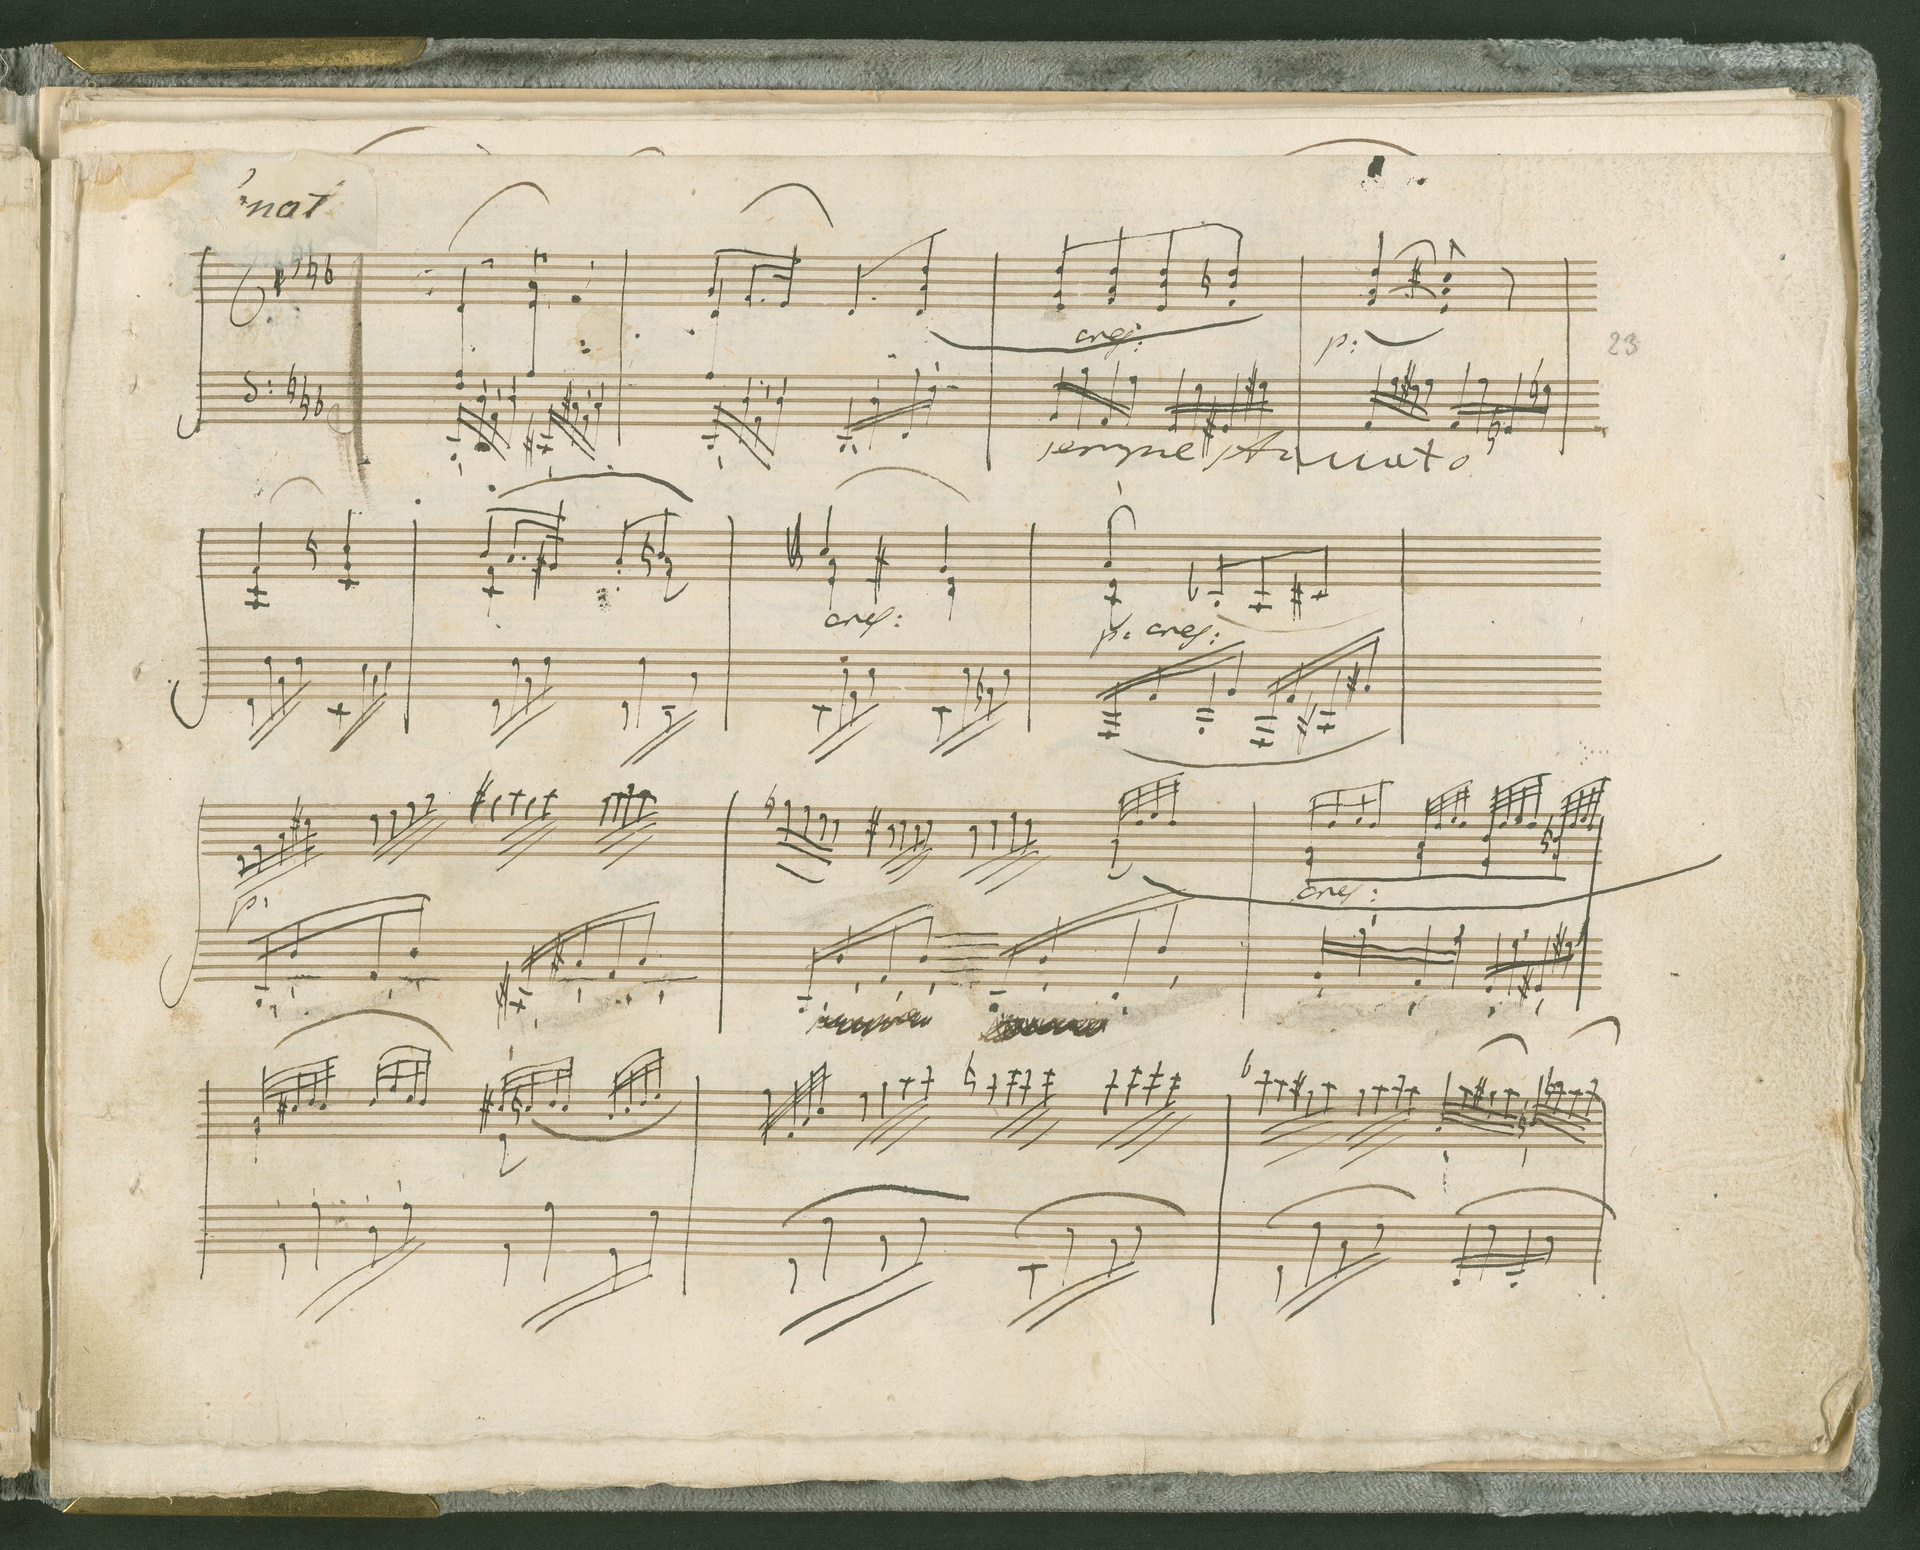 nat
cresc:
p:
23
sempre staccato
cresc:
p: cresc:
p:
cresc: